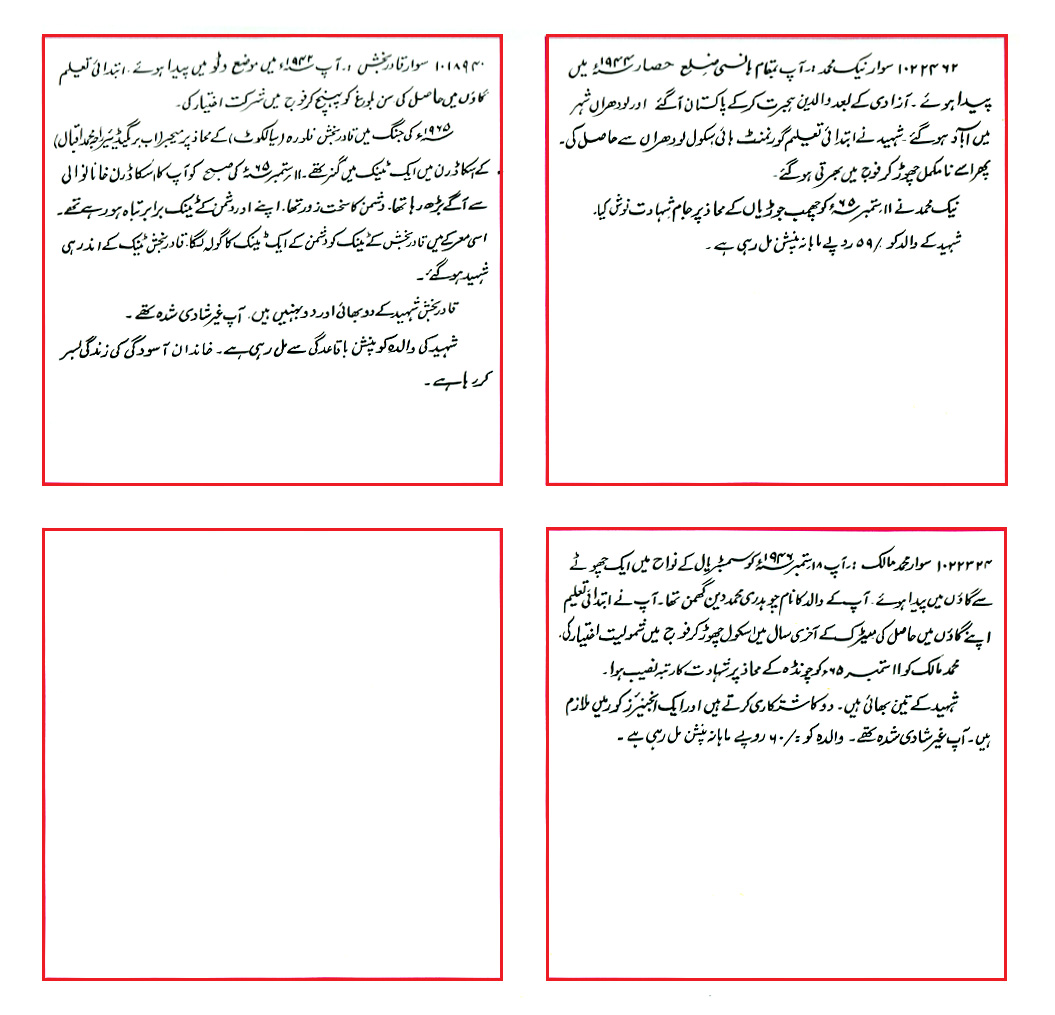 ۱۰۲۲۴۶۲ سوار نیک محمد :۔ آپ بمقام ہانسی ضلع حصار ۱۹۴۴ء میں
پیدا ہوئے ۔ آزادی کے بعد والدین ہجرت کرکے پاکستان آگئے اور لودھراں شہر
میں آباد ہوگئے۔ شہید نے ابتدائی تعلیم گورنمنٹ ہائی سکول لودھراں سے حاصل کی۔
پھر اسے نامکمل چھوڑ کر فوج میں بھرتی ہوگئے۔
نیک محمد نے ۱۱ ستمبر ۶۵ء کو چھمب جوڑیاں کے محاذ پر جام شہادت نوش کیا۔
شہید کے والد کو ۵۹/۔ روپے ماہانہ پنشن مل رہی ہے ۔
۱۰۱۸۹۴۰ سوار قادر بخش :۔ آپ ۱۹۴۲ء میں موضع دلو میں پیدا ہوئے ۔ ابتدائی تعلیم
گاؤں میں حاصل کی سن بلوغ کو پہنچ کر فوج میں شرکت اختیار کی۔
۱۹۶۵ء کی جنگ میں قادر بخش فلورہ (سیالکوٹ) کے محاذ پر میجر (اب بریگیڈیئر) راجہ محمد اقبال)
کے سکاڈرن میں ایک ٹینک میں گنر تھے۔ ۱۱ ستمبر ۶۵ء کی صبح کو آپ کا اسکاڈرن خانانوالی
سے آگے بڑھ رہا تھا۔ دشمن کا سخت زور تھا۔ اپنے اور دشمن کے ٹینک برابر تباہ ہو رہے تھے۔
اسی معرکے میں قادر بخش کے ٹینک کو دشمن کے ایک ٹینک کا گولہ لگا۔ قادر بخش ٹینک کے اندر ہی
شہید ہوگئے۔
قادر بخش شہید کے دو بھائی اور دو بہنیں ہیں۔ آپ غیر شادی شدہ تھے ۔
شہید کی والدہ کو پنشن باقاعدگی سے مل رہی ہے ۔ خاندان آسودگی کی زندگی بسر
کر رہا ہے ۔
۱۰۲۲۳۲۴ سوار محمد مالک :۔ آپ ۱۸ ستمبر ۱۹۴۶ء کو سمبڑیال کے نواح میں ایک چھوٹے
سے گاؤں میں پیدا ہوئے۔ آپ کے والد کا نام چوہدری محمد دین گھمن تھا۔ آپ نے ابتدائی تعلیم
اپنے گاؤں میں حاصل کی میٹرک کے آخری سال میں اسکول چھوڑ کر فوج میں شمولیت اختیار کی۔
محمد مالک کو ۱۱ ستمبر ۶۵ء کو چونڈہ کے محاذ پر شہادت کا رتبہ نصیب ہوا ۔
شہید کے تین بھائی ہیں۔ دو کاشتکاری کرتے ہیں اور ایک انجنیئرز کور میں ملازم
ہیں۔ آپ غیر شادی شدہ تھے ۔ والدہ کو ۶۰/۔ روپے ماہانہ پنشن مل رہی ہے ۔